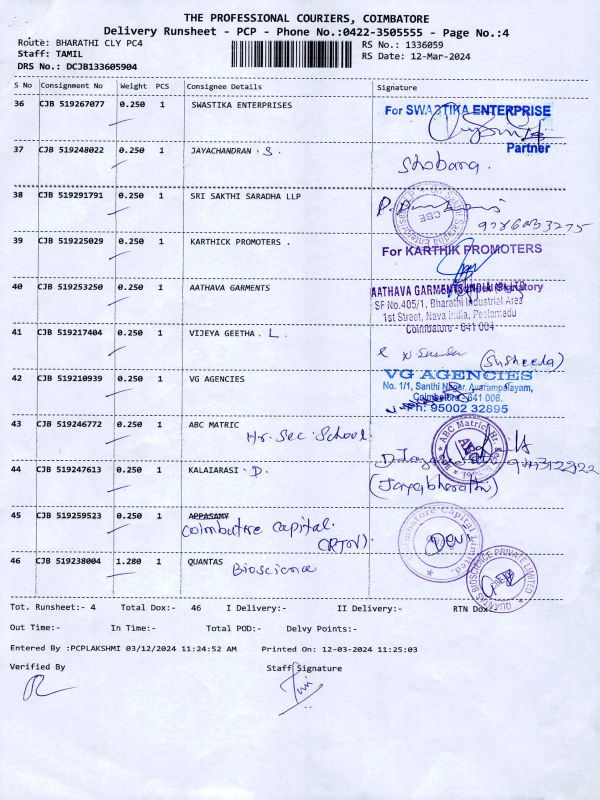 THE PROFESSIONAL COURIERS, COIMBATORE
Delivery Runsheet - PCP - Phone No.:0422-3505555 - Page No.:4
Route: BHARATHI CLY PC4 RS No.: 1336059
Staff: TAMIL RS Date: 12-Mar-2024
DRS No.: DCJB133605904
S No Consignment No Weight PCS Consignee Details Signature
36 CJB 519267077 0.250 1 SWASTIKA ENTERPRISES
For SWASTIKA ENTERPRISE
Partner
37 CJB 519248022 0.250 1 JAYACHANDRAN . S.
Shobana.
38 CJB 519291791 0.250 1 SRI SAKTHI SARADHA LLP
CBE
39 CJB 519225029 0.250 1 KARTHICK PROMOTERS .
For KARTHIK PROMOTERS
40 CJB 519253250 0.250 1 AATHAVA GARMENTS
AATHAVA GARMENTS INDIA (P) LTD
SF No.405/1, Bharathi Industrial Area
1st Street, Nava India, Peelamedu
Coimbatore - 641 004
41 CJB 519217404 0.250 1 VIJEYA GEETHA . L.
(Susheela)
42 CJB 519210939 0.250 1 VG AGENCIES
VG AGENCIES
No. 1/1, Santhi Nagar, Avarampalayam,
Coimbatore - 641 006.
Ph: 95002 32895
43 CJB 519246772 0.250 1 ABC MATRIC
Hr. Sec. School.
ABC Matric. Hr.
44 CJB 519247613 0.250 1 KALAIARASI . D.
(Jayabharathi)
45 CJB 519259523 0.250 1 APPASAMY
Coimbatore Capital.
(RTN).
Coimbatore Capital Limited
Devi
46 CJB 519238004 1.280 1 QUANTAS
Bioscience
QUANTAS BIOSCIENCE PRIVATE LIMITED
Tot. Runsheet:- 4 Total Dox:- 46 I Delivery:- II Delivery:- RTN Dox
Out Time:- In Time:- Total POD:- Delvy Points:-
Entered By :PCPLAKSHMI 03/12/2024 11:24:52 AM Printed On: 12-03-2024 11:25:03
Verified By Staff Signature